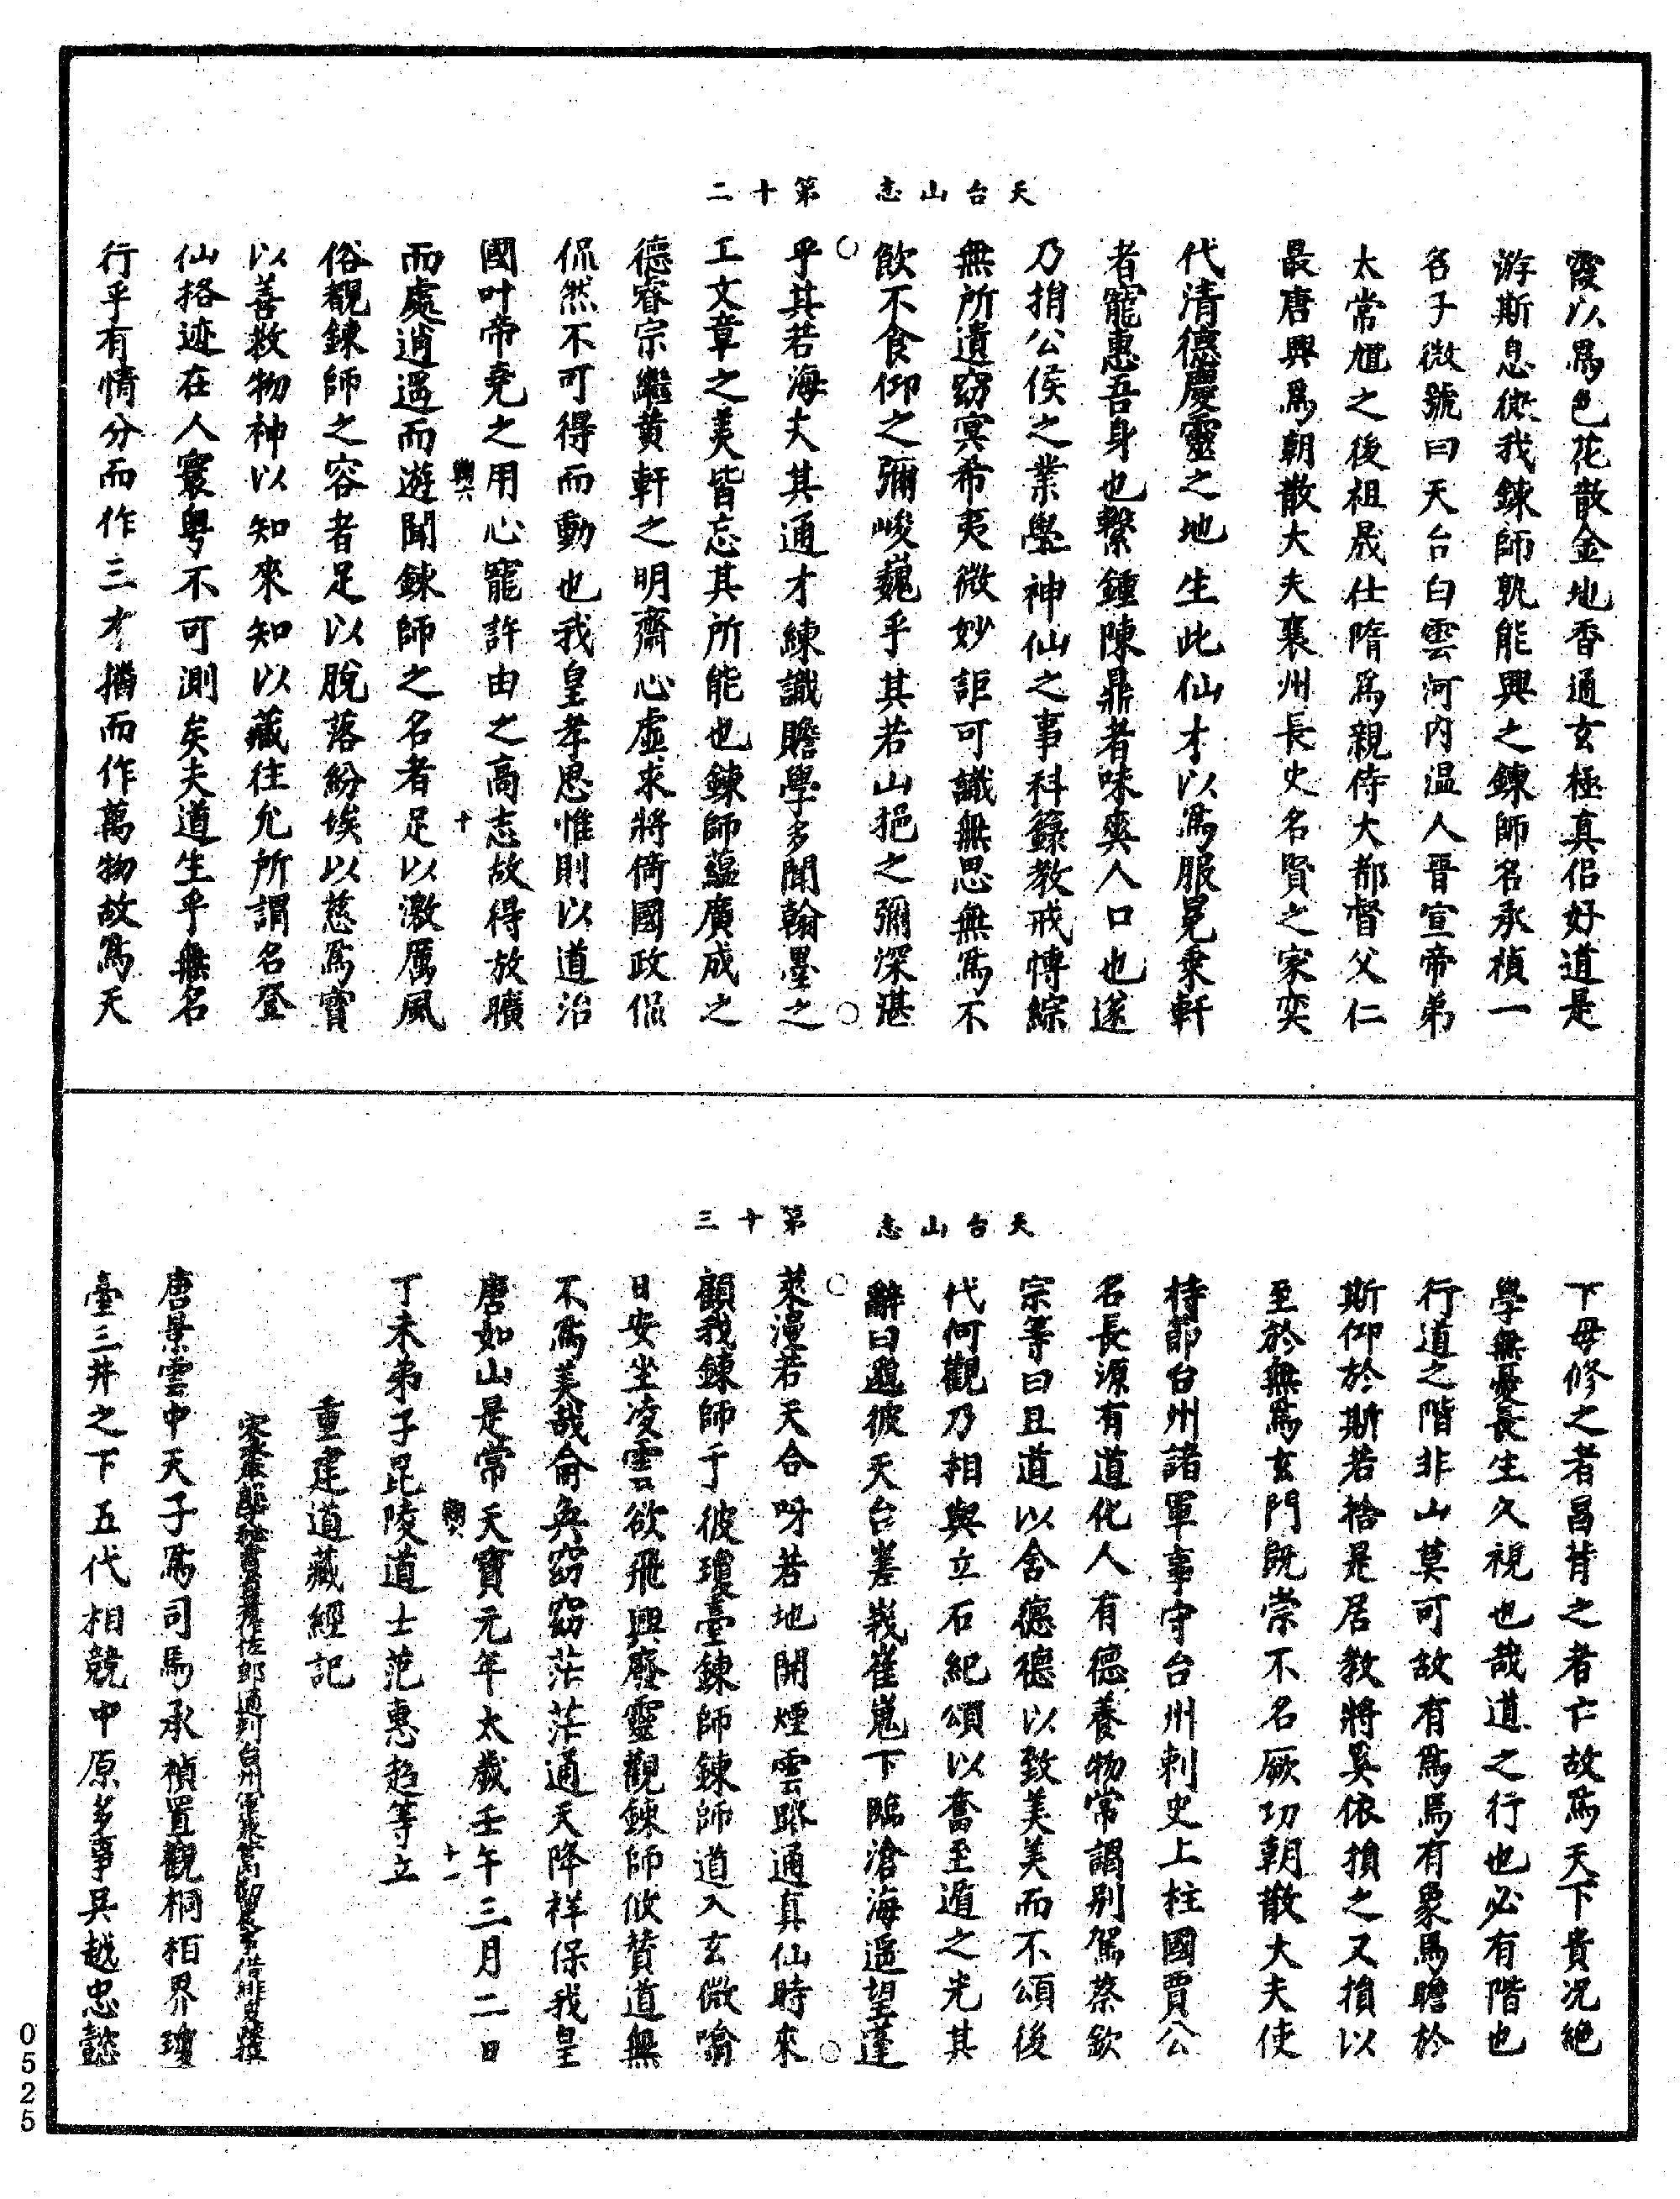 天台山志　第十二
霞以爲色花散金地香通玄極真侶好道是
游斯息微我錬師孰能興之錬師名承禎一
名子微號曰天台白雲河内温人晉宣帝弟
太常馗之後祖晟仕隋爲親侍大都督父仁
最唐興爲朝散大夫襄州長史名賢之家奕
代清德慶靈之地生此仙才以爲服冕乗軒
者寵惠吾身也繫鍾陳鼎者味爽人口也遂
乃捐公侯之業學神仙之事科籙教戒博綜
無所遺窈冥希夷微妙詎可識無思無爲不
飲不食仰之彌峻巍乎其若山挹之彌深湛
乎其若海夫其通才練識贍學多聞翰墨之
工文章之美皆忘其所能也錬師藴廣成之
德睿宗繼黄軒之明齋心虚求將倚國政侃
侃然不可得而動也我皇孝思惟則以道治
國叶帝堯之用心寵許由之高志故得放曠
十
而處逍遥而遊聞錬師之名者足以激厲風
俗覩錬師之容者足以脱落紛埃以慈爲寶
以善救物神以知來知以藏往允所謂名登
仙格迹在人寰粤不可測矣夫道生乎無名
行乎有情分而作三才播而作萬物故爲天
天台山志　第十三
下母修之者昌背之者亡故爲天下貴況絶
學無憂長生久視也哉道之行也必有階也
行道之階非山莫可故有爲焉有象焉瞻於
斯仰於斯若捨是居教將奚依損之又損以
至於無爲玄門旣崇不名厥功朝散大夫使
持節台州諸軍事守台州刺史上柱國賈公
名長源有道化人有德養物常謂别駕蔡欽
宗等曰且道以含德德以致美美而不頌後
代何觀乃相與立石紀頌以奮至道之光其
辭曰邈彼天台嵳峩崔嵬下臨滄海遥望蓬
萊漫若天合呀若地開煙雲路通真仙時來
顧我錬師于彼瓊臺錬師錬師道入玄微喻
日安坐凌雲欲飛興廢靈觀錬師攸贊道無
不爲美哉侖奐窈窈茫茫通天降祥保我皇
唐如山是常天寶元年太歲壬午三月二日
十一
丁未弟子毘陵道士范惠超等立
重建道藏經記
唐景雲中天子爲司馬承禎置觀桐栢界瓊
臺三井之下五代相競中原多事吴越忠懿
0525